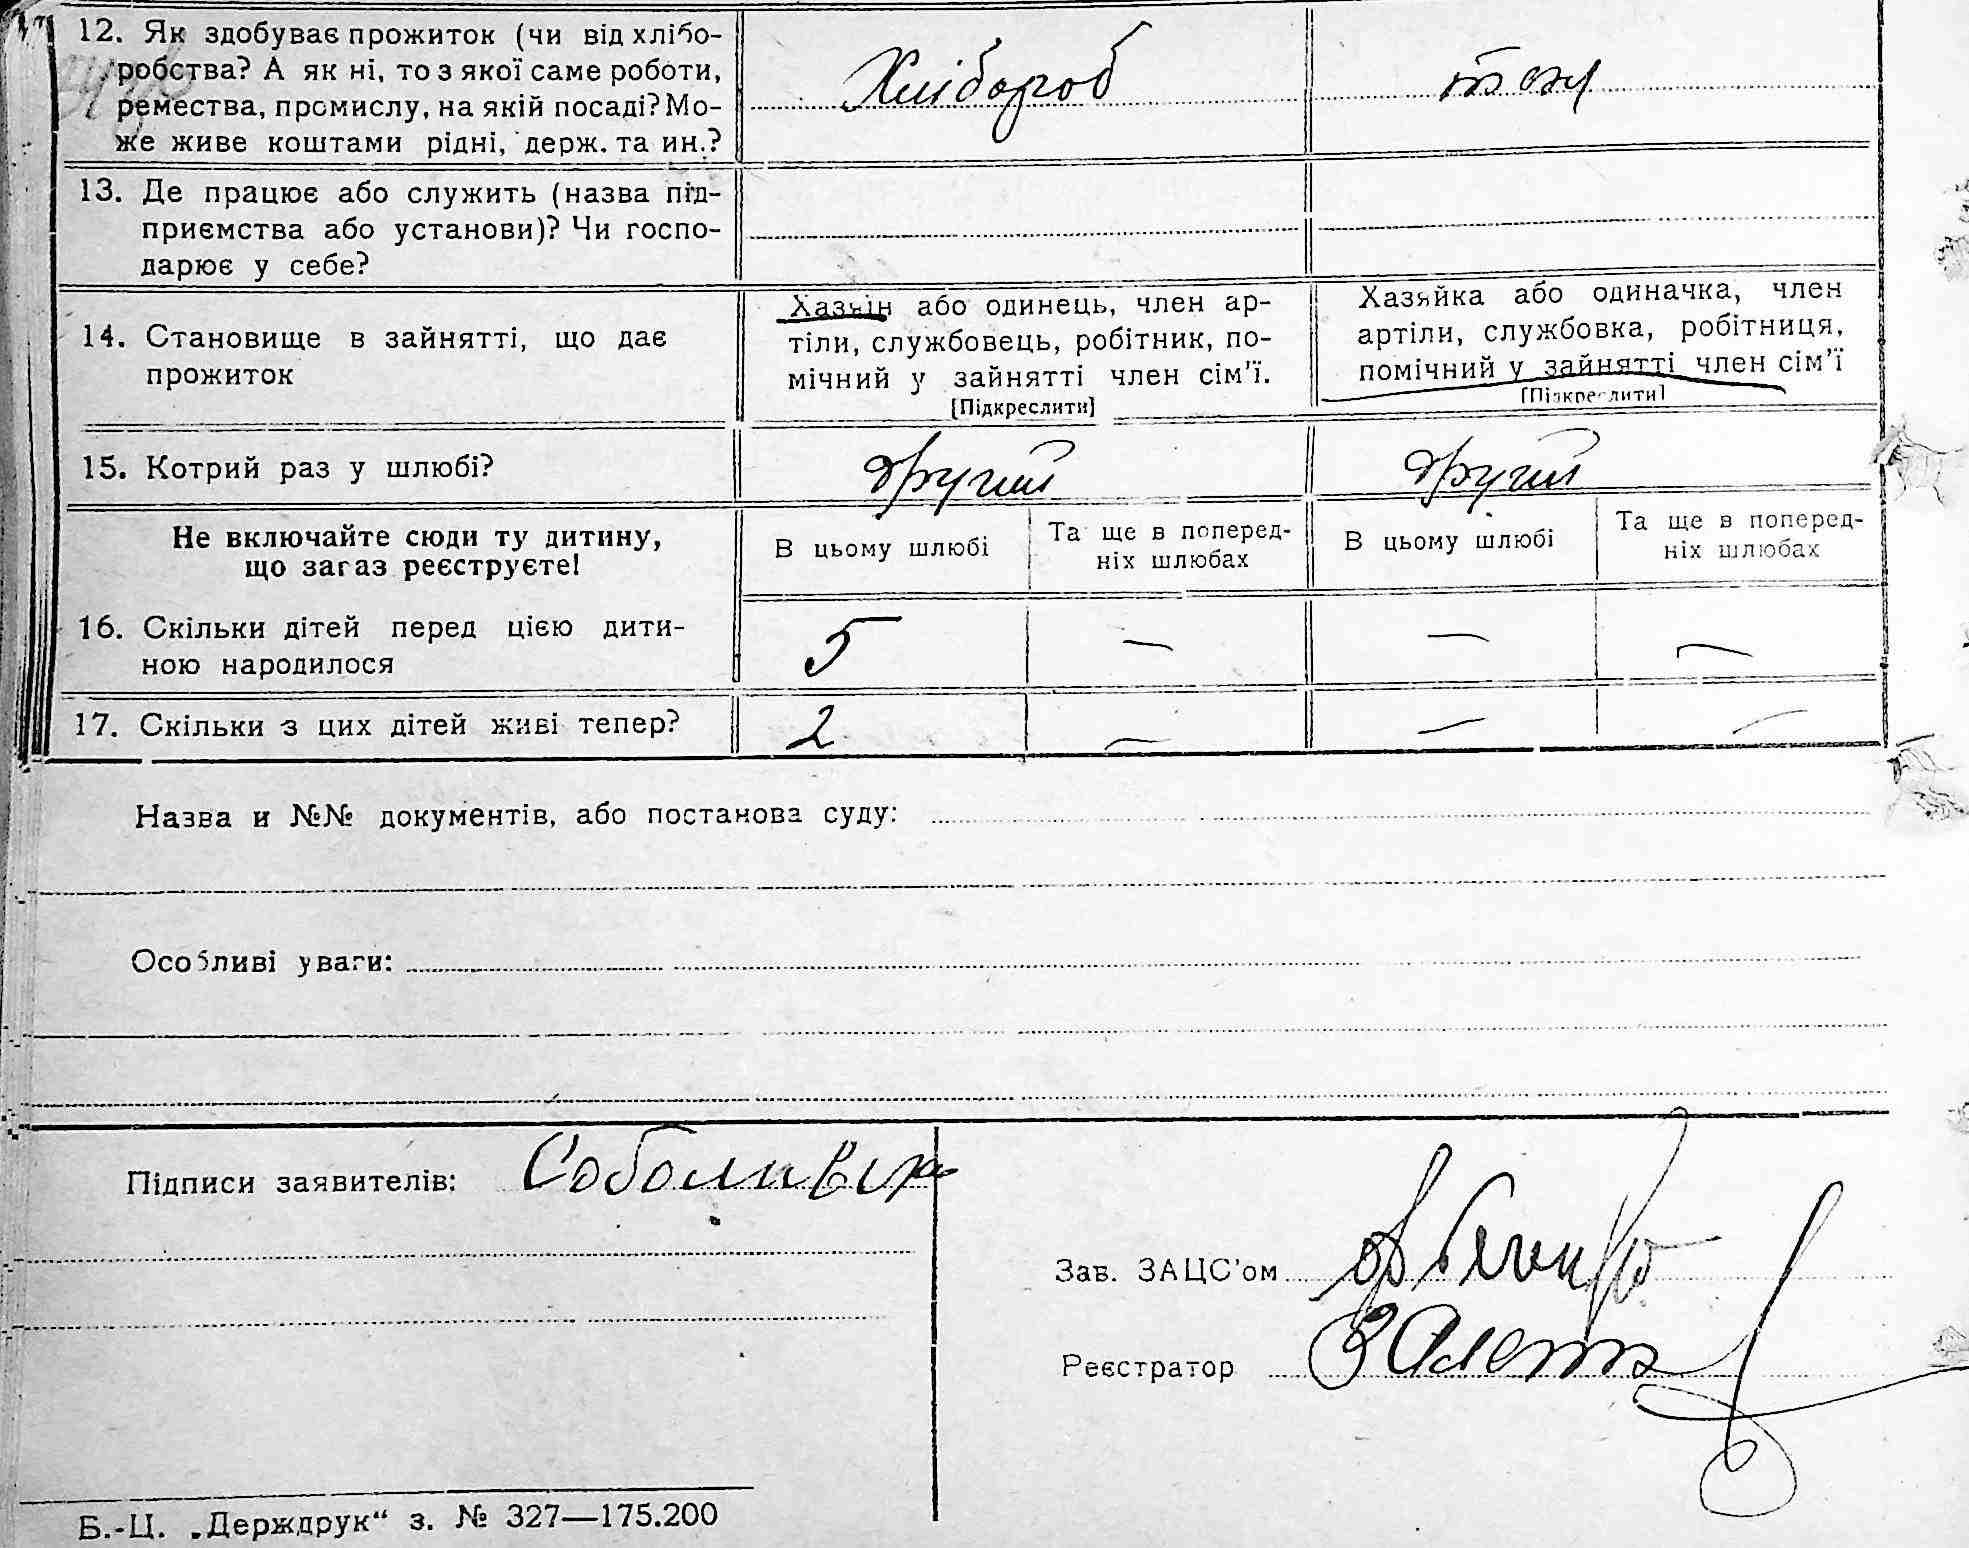 12. Як здобуває прожиток (чи від хлібо-
робства? А як ні, то з якої саме роботи,
ремества, промислу, на якій посаді? Мо-
же живе коштами рідні, держ. та ин.?
Хлібороб
13. Де працює або служить (назва під-
приємства або установи)? Чи госпо-
дарює у себе?
14. Становище в зайнятті, що дає
прожиток
Хазяїн або одинець, член ар-
тіли, службовець, робітник, по-
мічний у зайнятті член сім'ї.
[Підкреслити]
Хазяйка або одиначка, член
артіли, службовка, робітниця,
помічний у зайнятті член сім'ї
[Підкреслити]
15. Котрий раз у шлюбі?
другий
другий
Не включайте сюди ту дитину,
що зараз реєструєте!
В цьому шлюбі
Та ще в поперед-
ніх шлюбах
В цьому шлюбі
Та ще в поперед-
ніх шлюбах
16. Скільки дітей перед цією дити-
ною народилося
5 — — —
17. Скільки з цих дітей живі тепер?
2 — — —
Назва и №№ документів, або постанова суду:
Особливі уваги:
Підписи заявителів:
Зав. ЗАЦС'ом
Реєстратор
Б.-Ц. „Держдрук“ з. № 327—175.200